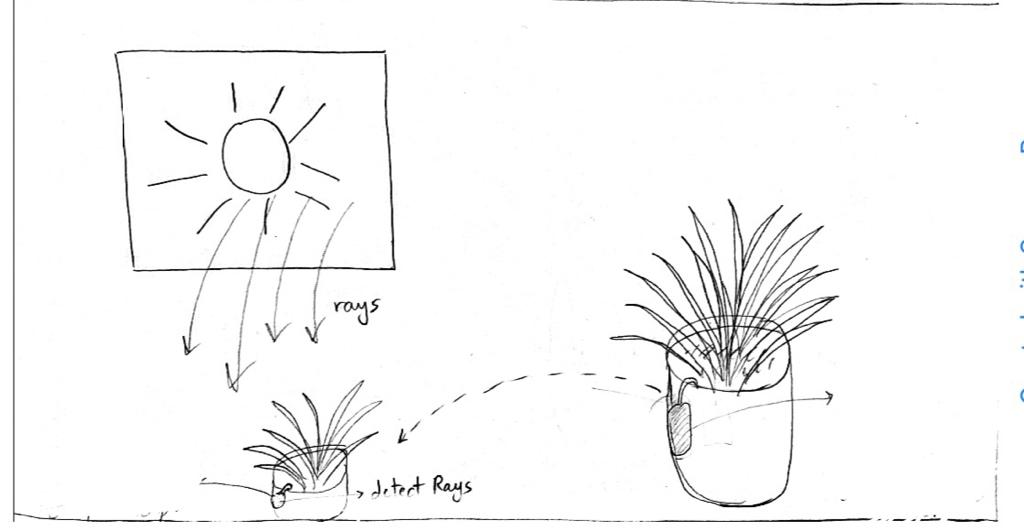 rays
detect Rays